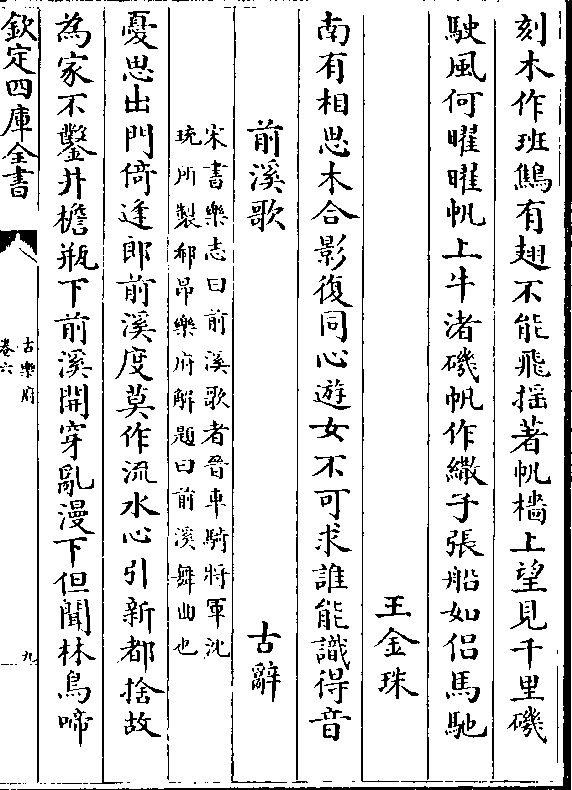 刻木作班鷦有翅不能飛揺著帆檣上望見千里磯
駛風何曜曜帆上牛渚磯帆作繖子張船如侣馬馳
王金珠
南有相思木合影復同心遊女不可求誰能識得音
前溪歌
古辭
宋書樂志曰前溪歌者晉車騎將軍沈
玧所製郗昂樂府解題曰前溪舞曲也
憂思出門倚逢郎前溪度莫作流水心引新都捨故
為家不鑿井檐瓶下前溪開穿亂漫下但聞林鳥啼
欽定四庫全書
古樂府
卷六
九